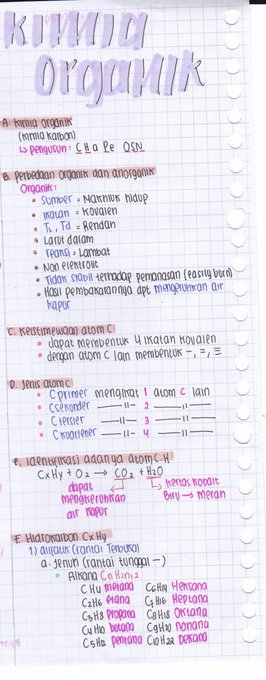 kimia
organik
A. Kimia organik
(kimia karbon)
↳ penyusun : C Ha Pe OSN
B. Perbedaan organik dan anorganik
Organik :
• Sumber = Makhluk hidup
• Ikatan = Kovalen
• TL, Td = Rendah
• Larut dalam
• reaksi = Lambat
• Non elektrolit
• Tidak stabil terhadap pemanasan (easily burn)
• Hasil pembakarannya dpt mengeruhkan air
kapur
C. Keistimewaan atom C
• dapat membentuk 4 ikatan kovalen
• dengan atom C lain membentuk −, =, ≡
D. Jenis atom C
• C primer mengikat 1 atom C lain
• C sekunder —11— 2 —11—
• C tersier —11— 3 —11—
• C kuartener —11— 4 —11—
E. Identifikasi adanya atom C-H
CxHy + O2 → CO2 + H2O
dapat mengkeruhkan air kapur
kertas kobalt
Biru → merah
F. Hidrokarbon CxHy
1) alifatik (rantai terbuka)
a. jenuh (rantai tunggal −)
• Alkana CnH2n+2
CH4 metana C6H14 Heksana
C2H6 etana C7H16 Heptana
C3H8 propana C8H18 Oktana
C4H10 butana C9H20 nonana
C5H12 pentana C10H22 dekana